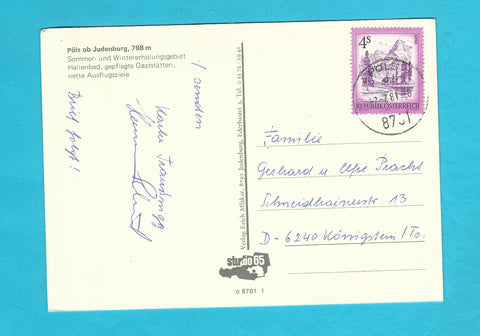 Pöls ob Judenburg, 798 m
Sommer- und Wintererholungsgebiet
Hallenbad, gepflegte Gaststätten,
nette Ausflugsziele
Brief folgt!
senden
Verlag Erich Mlakar, 8750 Judenburg, Ederbastei 5, Tel. 03572-2941
4S
REPUBLIK ÖSTERREICH
8761
Familie
Gerhard u. Elfie Pracht
Schneidhainerstr. 13
D-6240 Königstein/Ts.
studio 65
o 8761 1